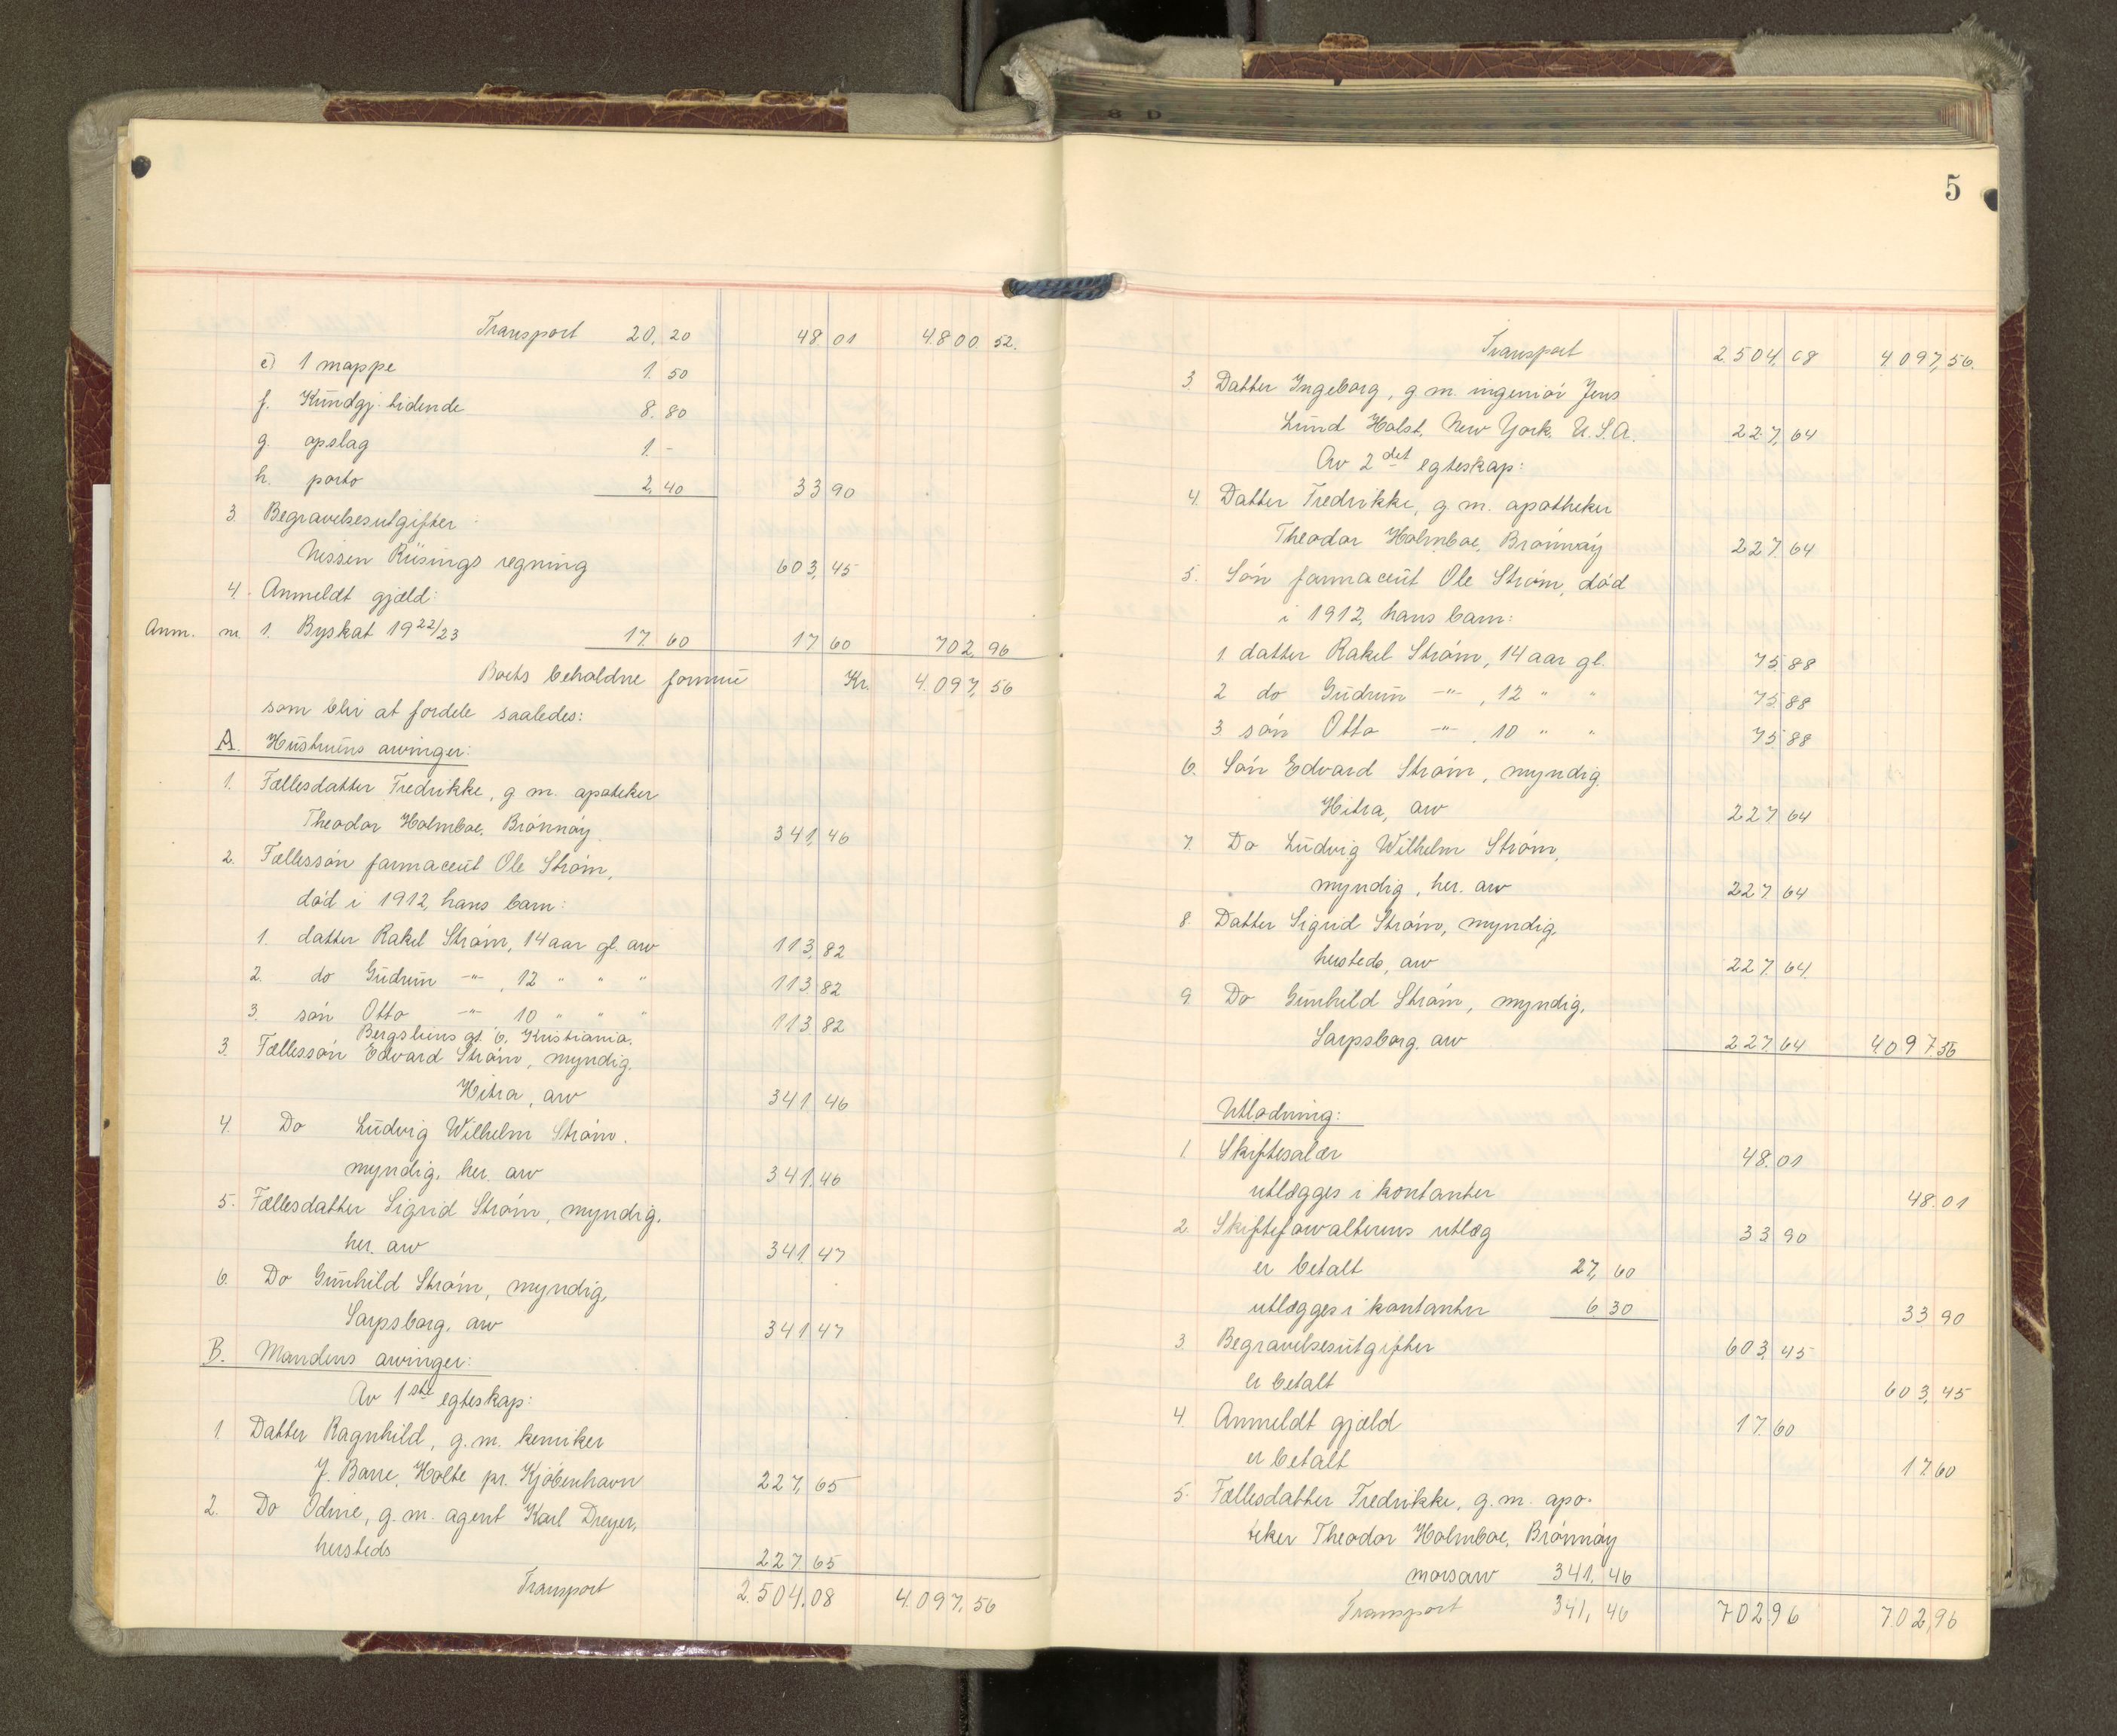 Transport 20,20 48 01 4.800 52.
e) 1 mappe 1. 50
f. Kundgj. tidende 8. 80
g. opslag 1. -
h. porto 2,40 33 90
3. Begravelsesutgifter
Nissen Riisings regning 603, 45
4. Anmeldt gjæld:
Anm. nr. 1. Byskat 1922/23 17. 60 17 60 702. 96
Boets beholdne formue Kr. 4.097, 56
som blir at fordele saaledes:
A. Hustruens arvinger:
1. Fællesdatter Fredrikke, g. m. apoteker
Theodor Holmboe, Brönnöy 341, 46
2. Fællessön farmaceut Ole Ström,
död i 1912, hans barn:
1. datter Rakel Ström, 14 aar gl. arv 113, 82
2. do Gudrun -"- , 12 " " " 113. 82
3. sön Otto -"- 10 " " " 113 82
Bergsliens gt. 6, Kristiania.
3. Fællessön Edvard Ström, myndig.
Hitra, arv 341 46
4. Do Ludvig Wilhelm Ström.
myndig, her. arv 341. 46
5. Fællesdatter Sigrid Ström, myndig.
her. arv 341. 47
6. Do Gunhild Ström, myndig,
Sarpsborg, arv 341 47
B. Mandens arvinger:
Av 1ste egteskap:
1. Datter Ragnhild, g. m. kemiker
J. Barre, Holte pr. Kjöbenhavn 227, 65
2. Do Odine, g. m. agent Karl Dreyer,
hersteds 227, 65
Transport 2.504.08 4.097, 56
5
Transport 2.504, 08 4.097, 56.
3 Datter Ingeborg, g m. ingeniör Jens
Lund Holst, New York. U.S.A. 227, 64
Av 2det egteskap:
4. Datter Fredrikke, g. m. apotheker
Theodor Holmboe, Brönnöy 227. 64
5. Sön farmaceut Ole Ström, död
i 1912, hans barn:
1 datter Rakel Ström, 14 aar gl. 75. 88
2 do Gudrun -"- , 12 " " 75 88
3 sön Otto -"- , 10 " " 75 88
6. Sön Edvard Ström, myndig,
Hitra, arv 227 64
7. Do Ludvig Wilhelm Ström,
myndig, her. arv 227 64
8. Datter Sigrid Ström, myndig,
hersteds, arv 227. 64.
9. Do Gunhild Ström, myndig,
Sarpsborg, arv 227, 64 4.097 56
Utlodning:
1. Skiftesalær 48. 01
utlægges i kontanter 48. 01
2. Skifteforvalterens utlæg 33, 90
er betalt 27, 60
utlægges i kontanter 6 30 33 90
3. Begravelsesutgifter 603, 45
er betalt 603, 45
4. Anmeldt gjæld 17. 60
er betalt 17 60
5. Fællesdatter Fredrikke, g. m. apo-
teker Theodor Holmboe, Brönnöy
morsarv 341, 46
Transport 341, 46 702 96 702, 96